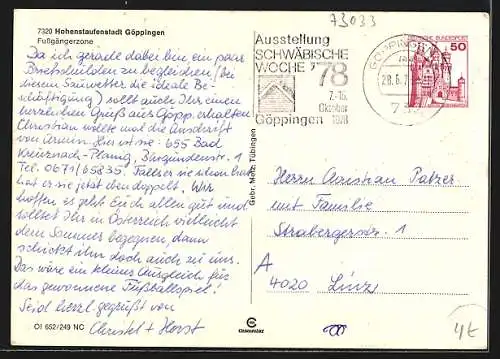 73033
7320 Hohenstaufenstadt Göppingen
Fußgängerzone
Da ich gerade dabei bin ein paar
Briefschulden zu begleichen (bei
diesem Sauwetter die ideale Be-
schäftigung) sollt auch Ihr einen
herzlichen Gruß aus Göpp. erhalten.
Christian wollte mal die Anschrift
von Armin. Hier ist sie: 655 Bad
Kreuznach-Planig, Burgunderstr. 1
Tel. 0671/65835. Falls er sie schon hat
hat er sie jetzt eben doppelt. Wir
hoffen es geht Euch allen gut und
solltet Ihr in Österreich vielleicht
dem Sommer begegnen, dann
schickt ihn doch auch zu uns.
Das wäre ein kleiner Ausgleich für
das gewonnene Fußballspiel!
Seid herzl. gegrüßt von
Christel + Horst
OI 652/249 NC
Gebr. Metz, Tübingen
Ausstellung
SCHWÄBISCHE
WOCHE '78
7.-15.
Oktober
1978
Göppingen
GÖPPINGEN
28.6.7
73
DEUTSCHE BUNDESPOST
50
Herrn Christian Patzer
mit Familie
Strabergerstr.
A
4020 Linz
4€